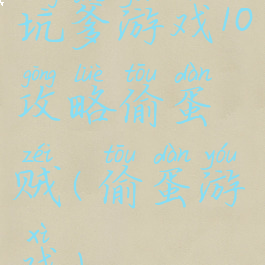 坑爹游戏10
gōng lüè tōu dàn
攻略偷蛋
zéi tōu dàn yóu
贼(偷蛋游
xì
戏)